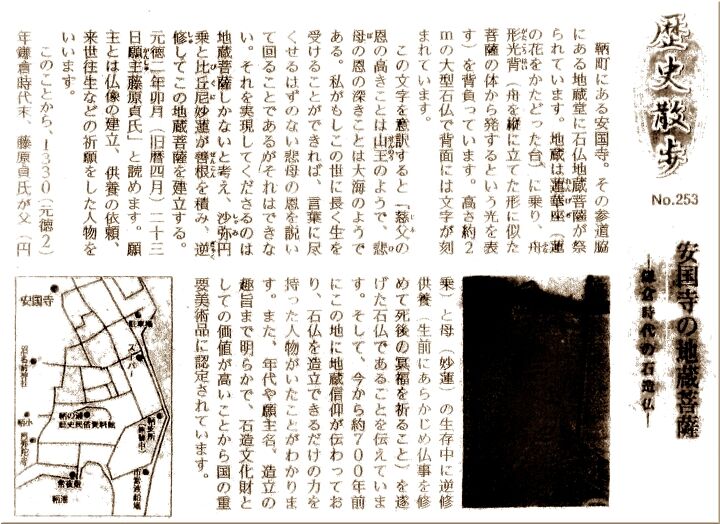 歴史散歩
No.253
安国寺の地蔵菩薩
―鎌倉時代の石造仏―
鞆町にある安国寺。その参道脇
にある地蔵堂に石仏地蔵菩薩が祭
られています。地蔵は蓮華座（蓮
の花をかたどった台）に乗り、舟
形光背（舟を縦に立てた形に似た
菩薩の体から発するという光を表
す）を背負っています。高さ約2
mの大型石仏で背面には文字が刻
まれています。
この文字を意訳すると「慈父の
恩の高きことは山王のようで、悲
母の恩の深きことは大海のようで
ある。私がもしこの世に長く生を
受けることができれば、言葉に尽
くせるはずのない悲母の恩を説い
て回ることであるがそれはできな
い。それを実現してくださるのは
地蔵菩薩しかないと考え、沙弥円
乗と比丘尼妙蓮が善根を積み、逆
修してこの地蔵菩薩を建立する。
元徳二年卯月（旧暦四月）二十三
日願主藤原貞氏」と読めます。願
主とは仏像の建立、供養の依頼、
来世往生などの祈願をした人物を
いいます。
このことから、1330（元徳2）
年鎌倉時代末、藤原貞氏が父（円
乗）と母（妙蓮）の生存中に逆修
供養（生前にあらかじめ仏事を修
めて死後の冥福を祈ること）を遂
げた石仏であることを伝えていま
す。そして、今から約700年前
にこの地に地蔵信仰が伝わってお
り、石仏を造立できるだけの力を
持った人物がいたことがわかりま
す。また、年代や願主名、造立の
趣旨まで明らかで、石造文化財と
しての価値が高いことから国の重
要美術品に認定されています。
安国寺
駐車場
スーパー
沼名前神社
鞆の浦
歴史民俗資料館
鞆小
鞆港